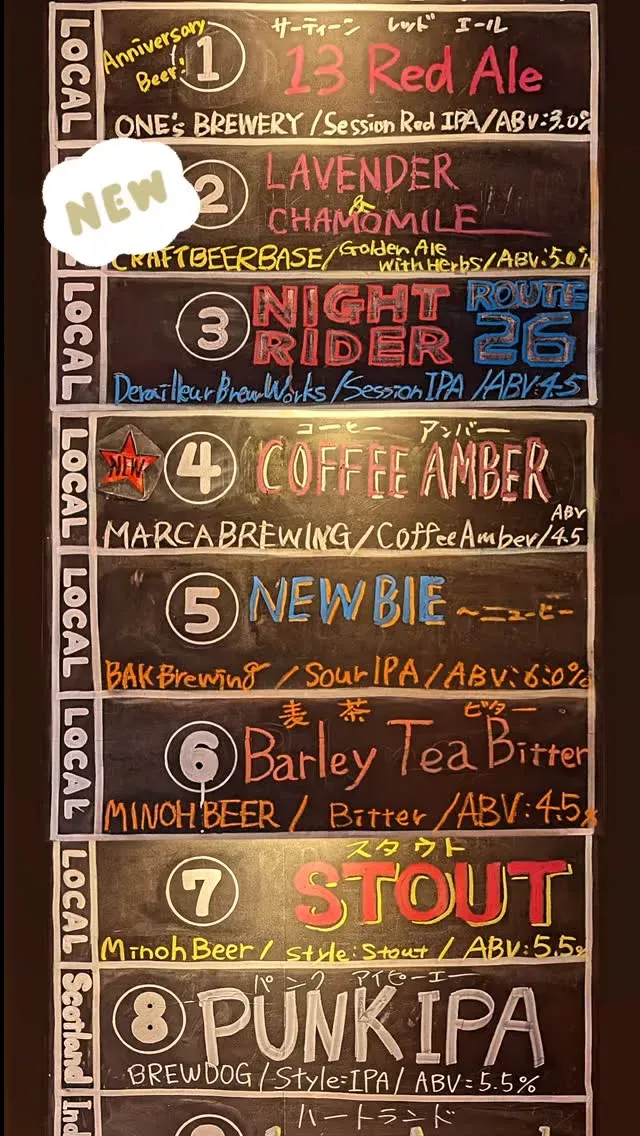 LOCAL
Anniversary Beer!
1
サーティーン レッド エール
13 Red Ale
ONE's BREWERY / Session Red IPA / ABV:3.0%
NEW
2
LAVENDER
&
CHAMOMILE
CRAFTBEERBASE / Golden Ale with Herbs / ABV:5.0%
LOCAL
3
NIGHT RIDER
ROUTE 26
Derailleur Brew Works / Session IPA / ABV:4.5
LOCAL
NEW
4
コーヒー アンバー
COFFEE AMBER
MARCA BREWING / Coffee Amber / ABV 4.5
LOCAL
5
NEWBIE ~ニュービー
BAK Brewing / Sour IPA / ABV:6.0%
LOCAL
6
麦茶 ビター
Barley Tea Bitter
MINOH BEER / Bitter / ABV:4.5%
LOCAL
7
スタウト
STOUT
Minoh Beer / Style:Stout / ABV:5.5%
Scotland
8
パンク アイピーエー
PUNK IPA
BREWDOG / Style:IPA / ABV=5.5%
ハートランド